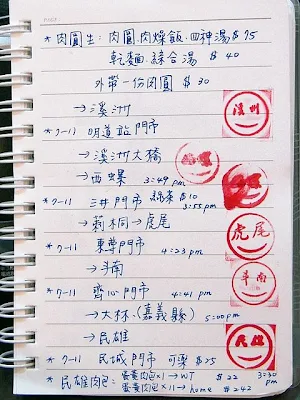 PAGE:
* 肉圓生: 肉圓.肉燥飯.四神湯 $75
乾麵.綜合湯 $40
外帶一份肉圓 $30
→ 溪洲
溪州
* 7-11 明道站門市
→ 溪洲大橋
→ 西螺 3:49 pm
* 7-11 三井門市 綠茶 $10
3:55 pm
→ 莿桐 → 虎尾
虎尾
* 7-11 東尊門市 4:23 pm
→ 斗南
斗南
* 7-11 齊心門市 4:41 pm
→ 大林.(嘉義縣) 5:00 pm
→ 民雄
民雄
* 7-11 民城門市 可樂 $25
* 民雄肉包: 蛋黃肉包×1 → WT $22 3:30 pm
蛋黃肉包×11 → home $242